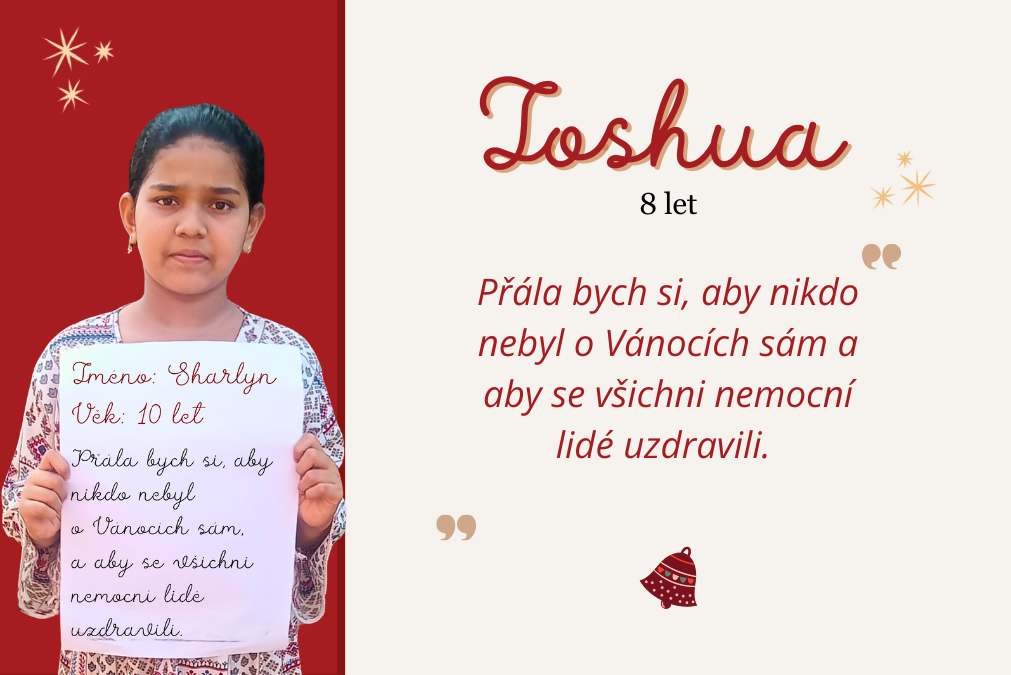 Jméno: Sharlyn
Věk: 10 let
Přála bych si, aby
nikdo nebyl
o Vánocích sám,
a aby se všichni
nemocní lidé
uzdravili.
Joshua
8 let
”
Přála bych si, aby nikdo
nebyl o Vánocích sám a
aby se všichni nemocní
lidé uzdravili.
”